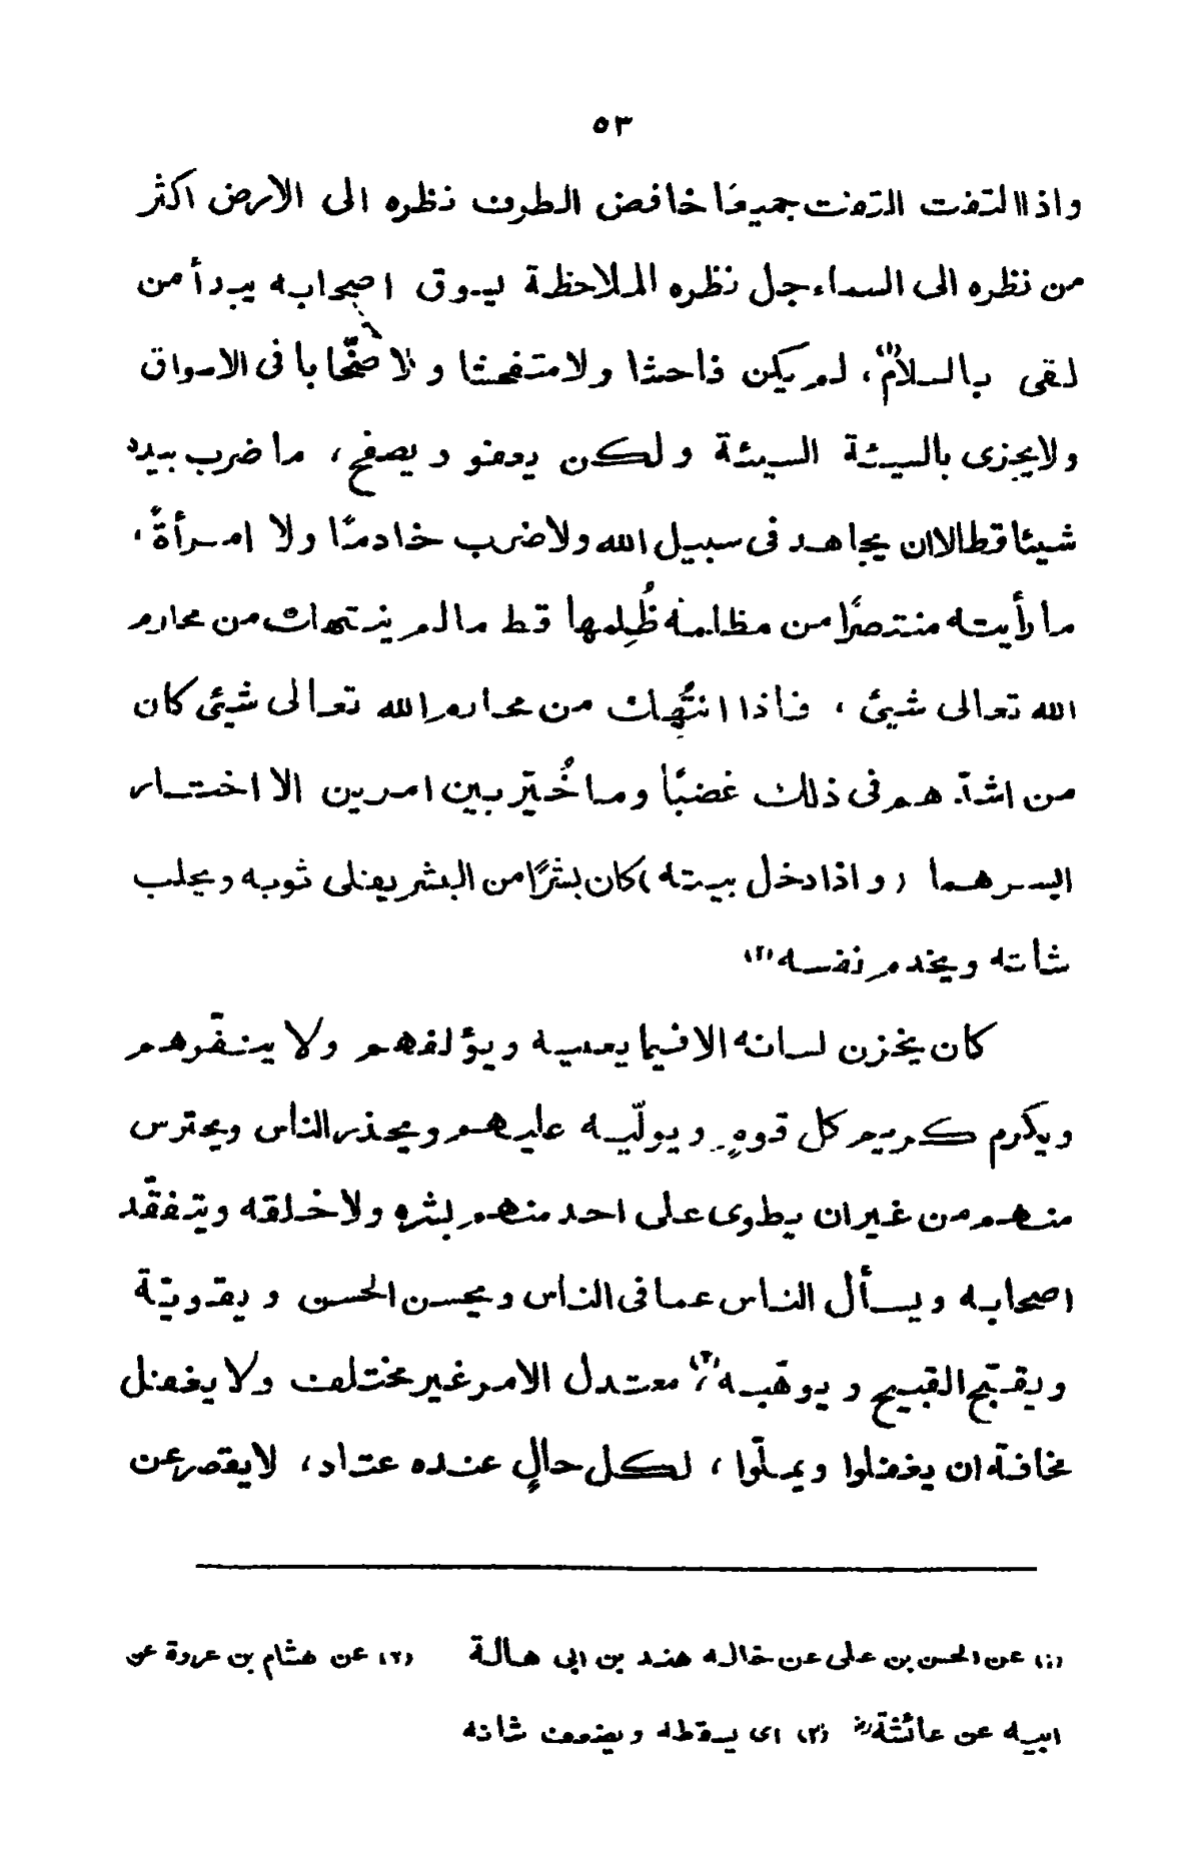 ٥٣
واذا التفت التفت جميعًا خافض الطرف نظره الى الارض اكثر
من نظره الى السماء، جل نظره الملاحظة يسوق اصحابه يبدأ من
لقى بالسلام(١)، لم يكن فاحشا ولا متفحشا و لا صخّابا فى الاسواق
ولا يجزى بالسيئة السيئة ولكن يعفو ويصفح، ما ضرب بيده
شيئا قط الا ان يجاهد فى سبيل الله ولا ضرب خادمًا ولا امرأةً،
ما رأيته منتصرًا من مظلمة ظُلِمها قط مالم ينتهك من محارم
الله تعالى شيئ، فاذا انتُهِك من محارم الله تعالى شيئ كان
من اشدّهم فى ذلك غضبًا وما خُيّر بين امرين الا اختار
ايسرهما (واذا دخل بيته) كان بشرًا من البشر يفلى ثوبه ويحلب
شاته ويخدم نفسه(٢)
كان يخزن لسانه الا فيما يعنيه ويؤلفهم ولا ينفّرهم
ويكرم كريم كل قومٍ ويولّيه عليهم ويحذر الناس ويحترس
منهم من غير ان يطوى على احد منهم بشره ولا خلقه ويتفقّد
اصحابه ويسأل الناس عما فى الناس ويحسن الحسن ويقويّة
ويقبّح القبيح ويوهّبه(٣)، معتدل الامر غير مختلف ولا يغفل
مخافة ان يغفلوا ويملّوا، لكل حالٍ عنده عتاد، لا يقصر عن
(١) عن الحسن بن على عن خاله هند بن ابى هالة (٢) عن هشام بن عروة عن
ابيه عن عائشة رض (٣) اى يسقطه ويضعف شانه